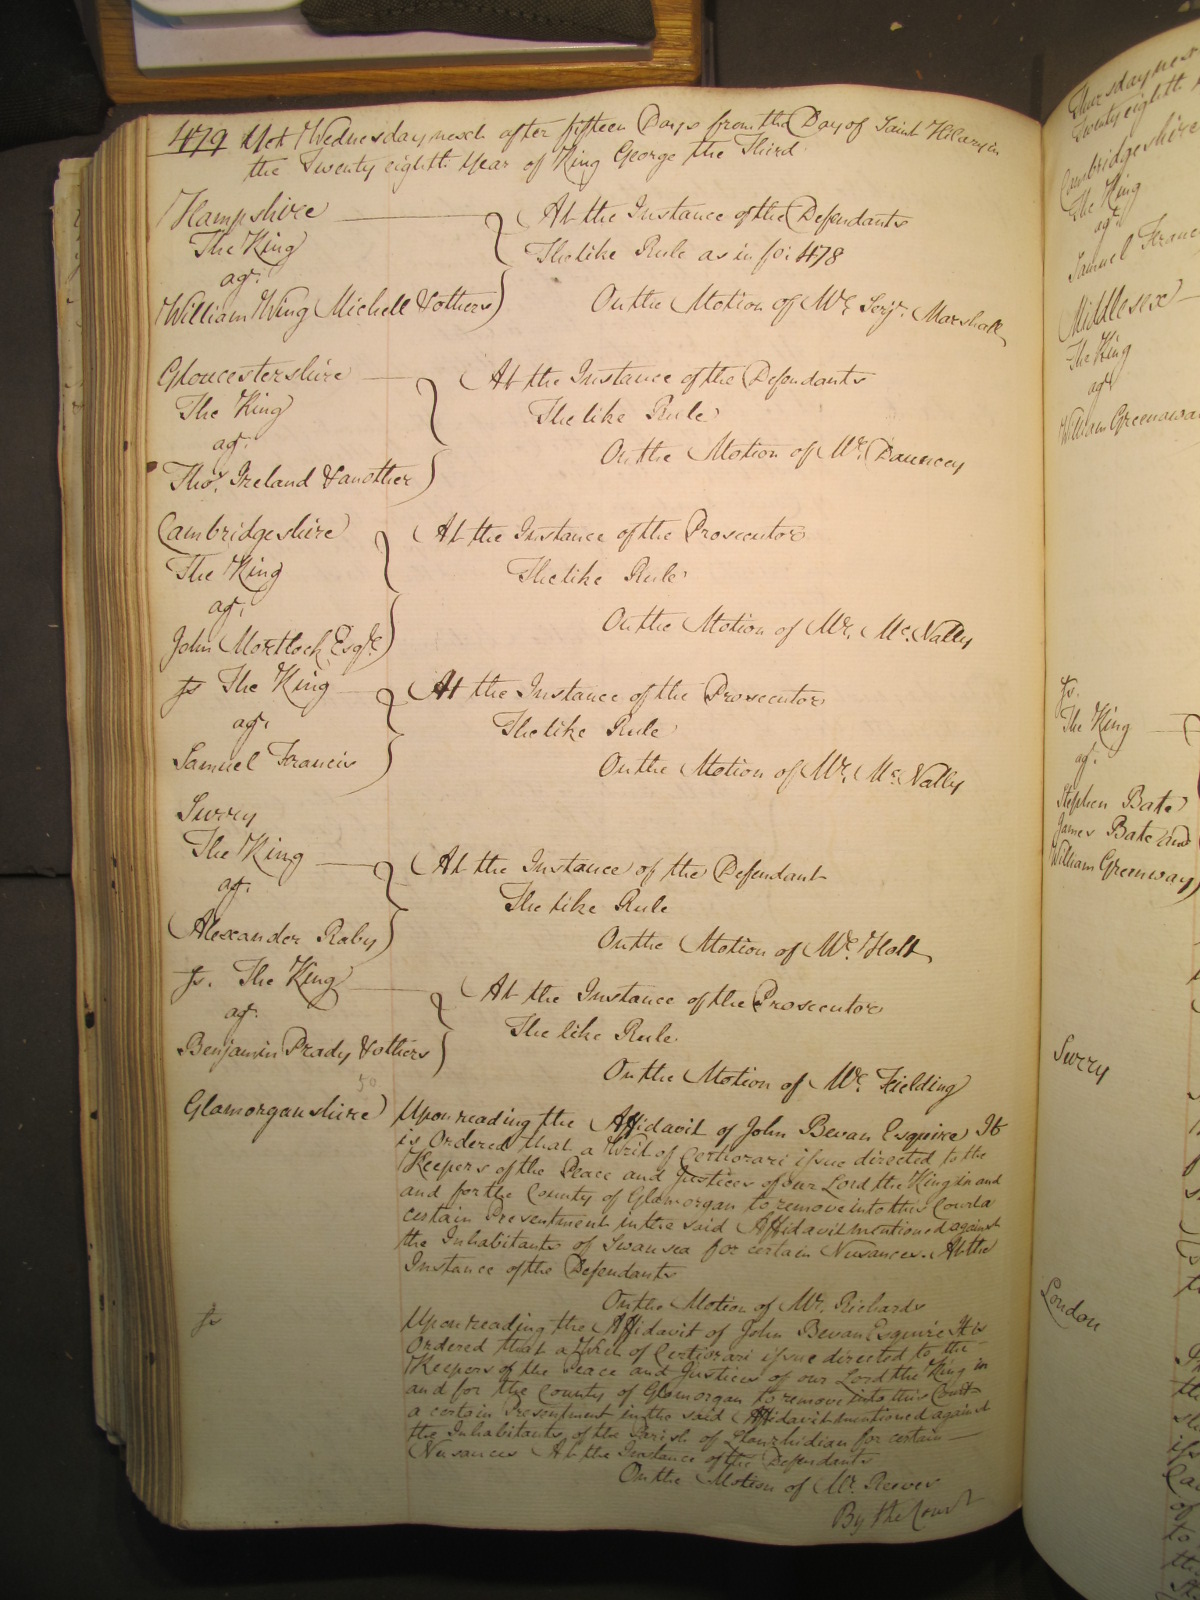 479 Yet Wednesday next after fifteen Days from the Day of Saint Hilary in
the Twenty eighth Year of King George the Third
Hampshire
The King
agt.
William Wing Michell & others
At the Instance of the Defendants
The like Rule as in fo: 478
On the Motion of Mr. Serjt. Marshall
Gloucestershire
The King
agt.
Thos. Ireland & another
At the Instance of the Defendants
The like Rule
On the Motion of Mr. Dauncey
Cambridgeshire
The King
agt.
John Mortlock Esqre.
At the Instance of the Prosecutor
The like Rule
On the Motion of Mr. Mc. Nally
fs The King
agt.
Samuel Francis
At the Instance of the Prosecutor
The like Rule
On the Motion of Mr. Mc. Nally
Surry
The King
agt.
Alexander Raby
At the Instance of the Defendant
The like Rule
On the Motion of Mr. Holt
fs. The King
agt.
Benjamin Prady & others
At the Instance of the Prosecutor
The like Rule.
On the Motion of Mr. Fielding
50
Glamorganshire
Upon reading the Affidavit of John Bevan Esquire It
is Ordered that a Writ of Certiorari issue directed to the
Keepers of the Peace and Justices of our Lord the King in and
and for the County of Glamorgan to remove into this Court a
certain Presentment in the said Affidavit mentioned against
the Inhabitants of Swansea for certain Nusances. At the
Instance of the Defendants
On the Motion of Mr. Richards
fs
Upon reading the Affidavit of John Bevan Esquire It is
Ordered that a Writ of Certiorari issue directed to the
Keepers of the Peace and Justices of our Lord the King in
and for the County of Glamorgan to remove into this Court
a certain Presentment in the said Affidavit mentioned against
the Inhabitants of the Parish of Llanrhidian for certain
Nusances At the Instance of the Defendants
On the Motion of Mr. Reeves
By the Court
Thursday next
Twenty eighth
Cambridgeshire
The King
agt.
Samuel
Middlesex
The King
agt
William Greenaway
fs.
The King
agt.
Stephen Bate
James Bate and
William Greenway
Surry
London